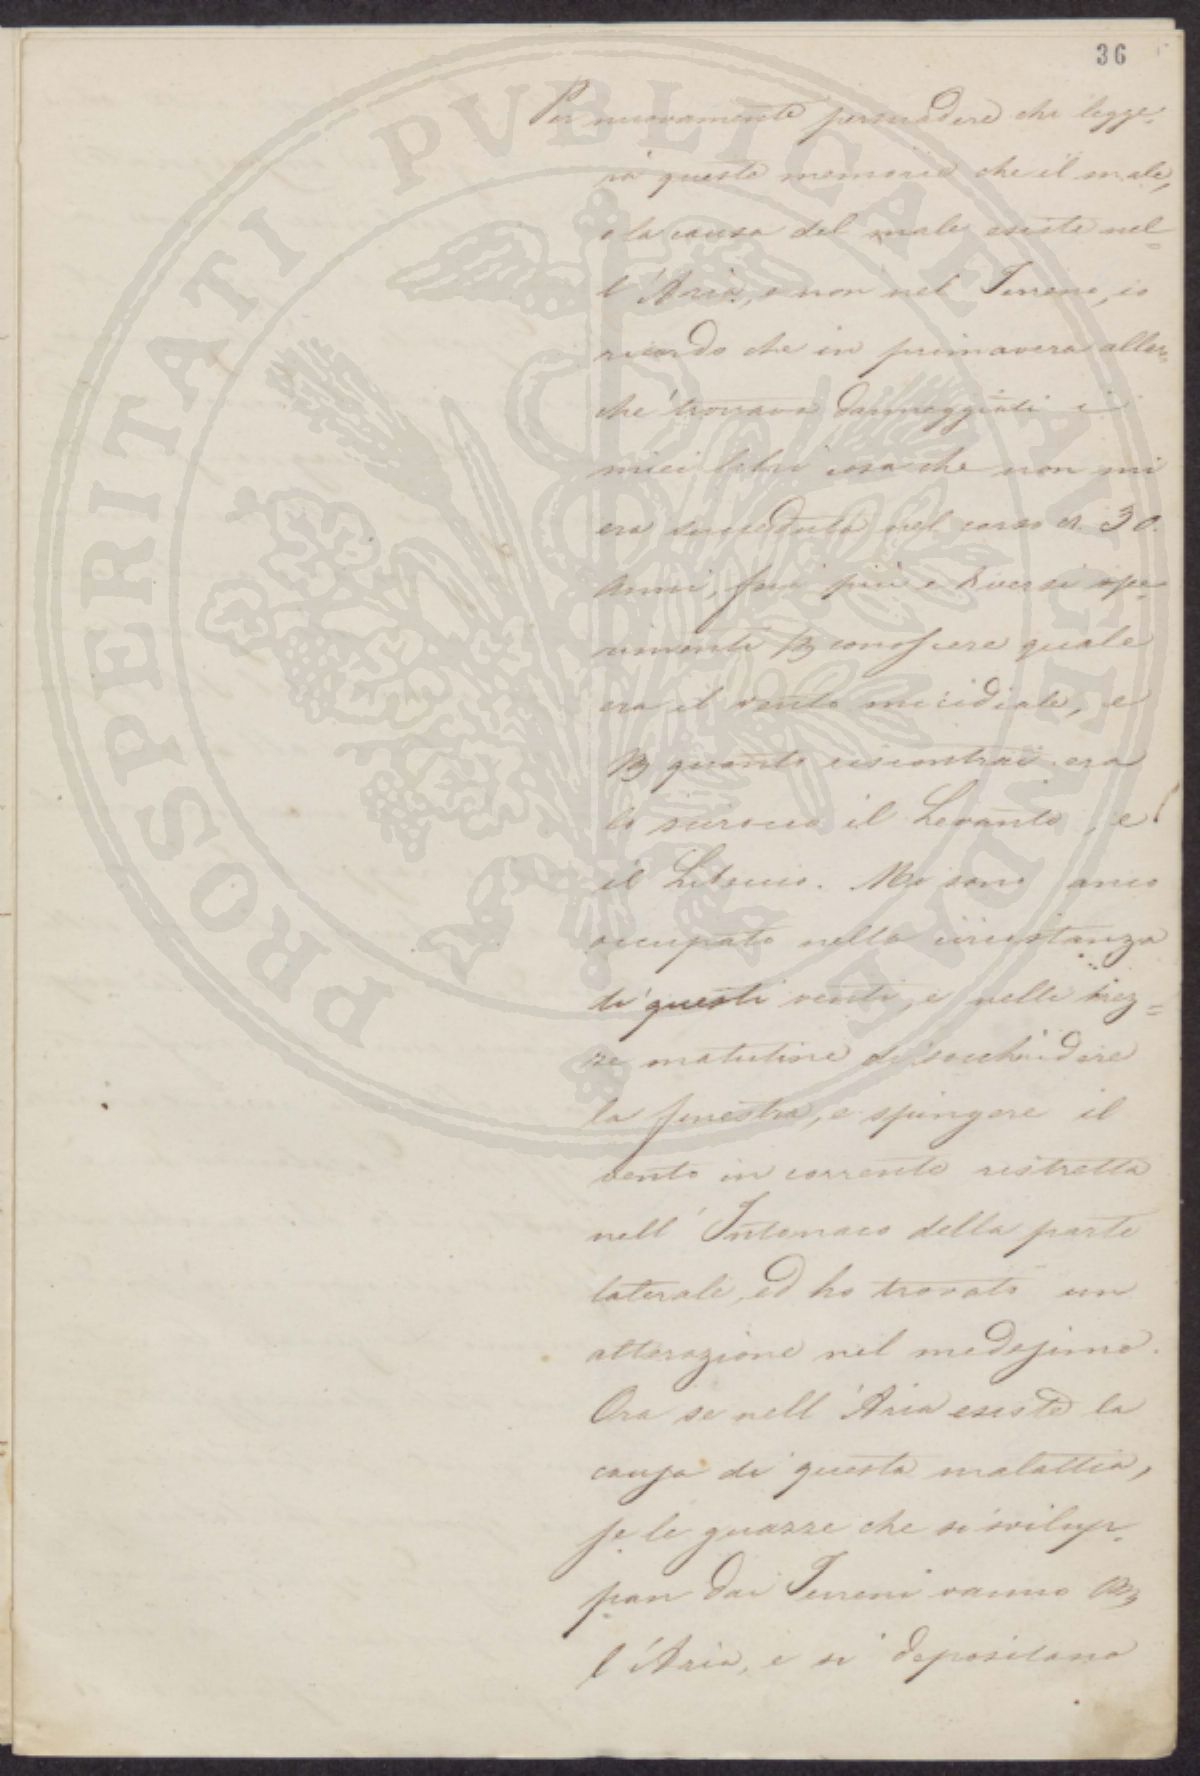 36
Per nuovamente persuadere chi legge-
rà questa memoria che il male,
e la causa del male esiste nel=
l'Aria, e non nel Terreno, io
ricordo che in primavera allor-
chè trovava danneggiati i
miei libri cosa che non mi
era succeduta nel corso di 30.
Anni, feci più e diversi spe-
rimenti per conoscere quale
era il vento micidiale, e
per quanto riscontrai era
lo scirocco il Levante, e
il Libeccio. Mi sono anco
occupato nella circostanza
di questi venti, e nelle brez=
ze matutine di socchiudere
la finestra, e spingere il
vento in corrente ristretta
nell'Intonaco della parte
laterale, ed ho trovato un
alterazione nel medesimo.
Ora se nell'Aria esiste la
causa di questa malattia,
se le guazze che si svilup-
pan dai Terreni vanno per
l'Aria, e si depositano
PROSPERITATI PVBLICAE AVGENDAE